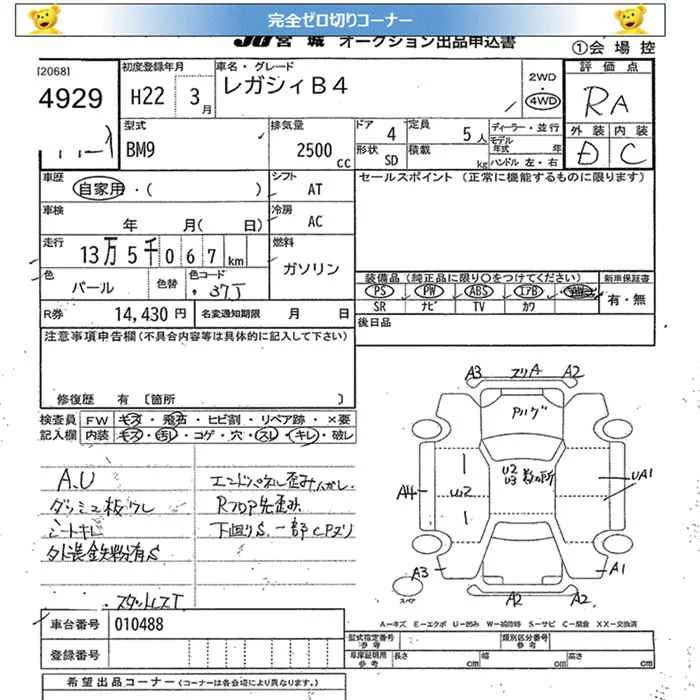 完全ゼロ切りコーナー
JU宮城 オークション出品申込書
①会場控
[2068]
4929
初度登録年月
H22 3月
車名・グレード
レガシィB4
2WD
・
4WD
評価点
RA
外装 内装
D C
型式
BM9
排気量
2500cc
ドア 4
定員 5人
形状 SD
積載 kg
ディーラー・並行
モデル年式 年
ハンドル 左・右
車歴
自家用・( )
シフト AT
セールスポイント (正常に機能するものに限ります)
車検
年 月( 日)
冷房 AC
走行
13万5千067km
燃料
ガソリン
色
パール
色替
色コード
37J
装備品 (純正品に限り○をつけてください)
新車保証書
PS PW ABS エアB
有・無
SR ナビ TV カワ
R券 14,430円
名変通知期限 月 日
後日品
注意事項申告欄(不具合内容等は具体的に記入して下さい)
修復歴 有〔箇所 〕
検査員記入欄
FW キズ・飛石・ヒビ割・リペア跡・×要
内装 キズ・汚レ・コゲ・穴・スレ・キレ・破レ
A.U
ダッシュ板ワレ
シートキレ
外装鉄粉有S
スタットレスT
エンドパネル歪み
RフロP先歪み
下回りS.一部CPヌリ
A3 スリA A2
Aハゲ
U2
U3 数カ所
UA1
A4
U2
A3
A1
A2 A2
スペア
A―キズ E―エクボ U―凹み W―補修跡 S―サビ C―腐食 XX―交換済
車台番号 010488
登録番号
型式指定番号 参考
類別区分番号 参考
車庫証明用 参考
長さ cm 幅 cm 高さ cm
希望出品コーナー(コーナーは各会場により異なります。)